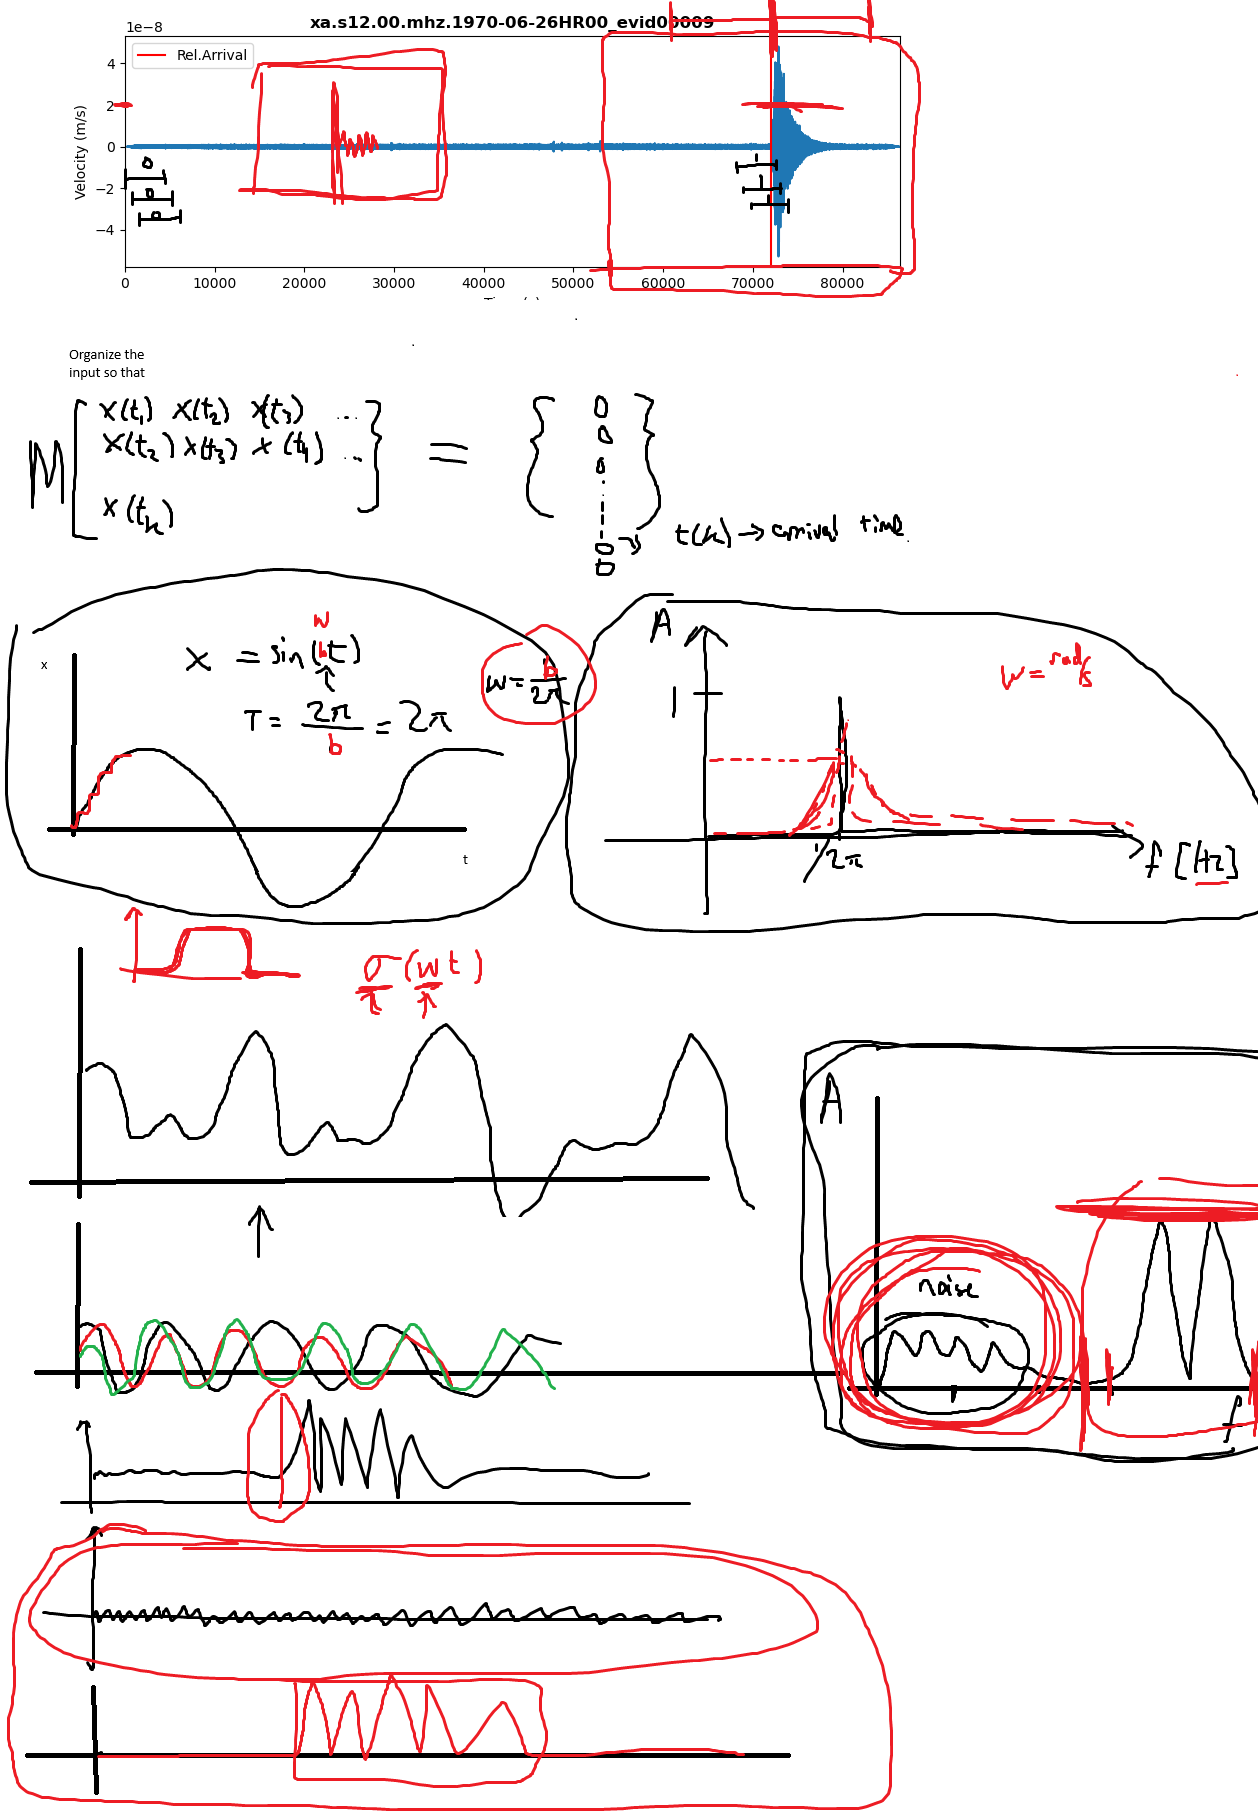 xa.s12.00.mhz.1970-06-26HR00_evid00009
1e−8
Rel.Arrival
4
2
0
−2
−4
Velocity (m/s)
0
0
0
0 10000 20000 30000 40000 50000 60000 70000 80000
Organize the
input so that
M [ x(t1) x(t2) x(t3) ... ] = { 0
x(t2) x(t3) x(t4) ... 0
0
x(tk)
t(k) → arrival time
0
0
x
w
x = sin(bt)
T = 2π/b = 2π
w = b/2π
t
A
1
w = rad/s
1/2π
f [Hz]
σ(wt)
A
noise
f